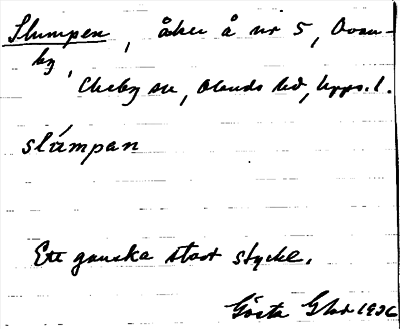 Slumpen, åker å nr 5, Ovan-
by,
Ekeby sn, Olands hd, Upps. l.
slúmpan
Ett ganska stort stycke.
Gösta 1936